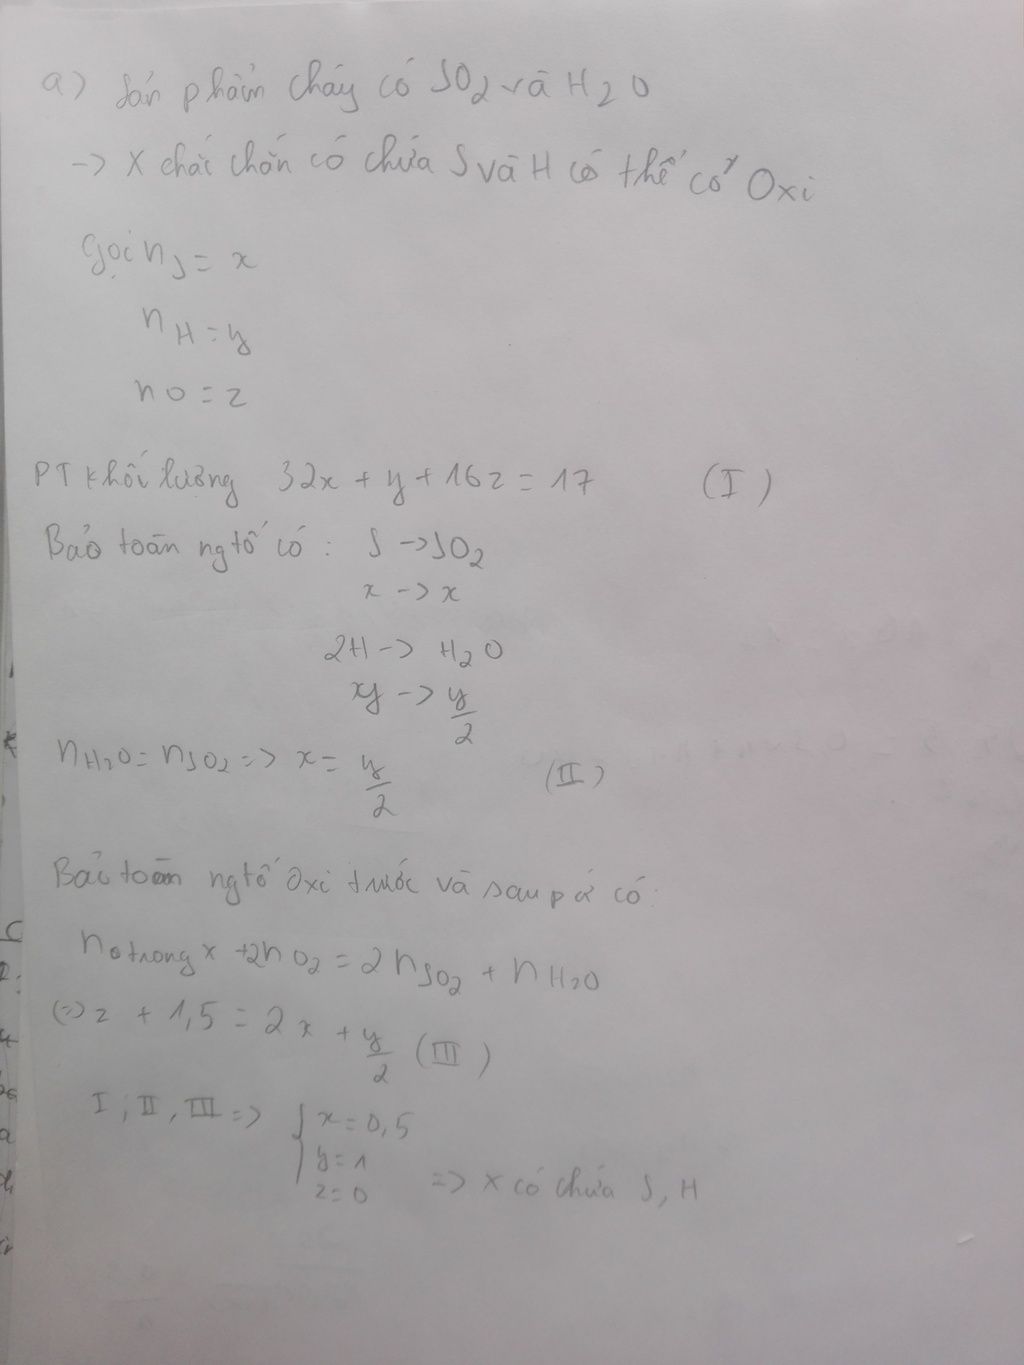 a) Sản phẩm cháy có SO2 và H2O
-> X chắc chắn có chứa S và H có thể có Oxi
Gọi nS = x
nH = y
nO = z
PT khối lượng 32x + y + 16z = 17 (I)
Bảo toàn ngtố có: S -> SO2
x -> x
2H -> H2O
y -> y/2
nH2O = nSO2 => x = y/2 (II)
Bảo toàn ngtố Oxi trước và sau pứ có:
nO trong X + 2nO2 = 2nSO2 + nH2O
(=> z + 1,5 = 2x + y/2 (III)
I; II, III => { x = 0,5
y = 1
z = 0 => X có chứa S, H